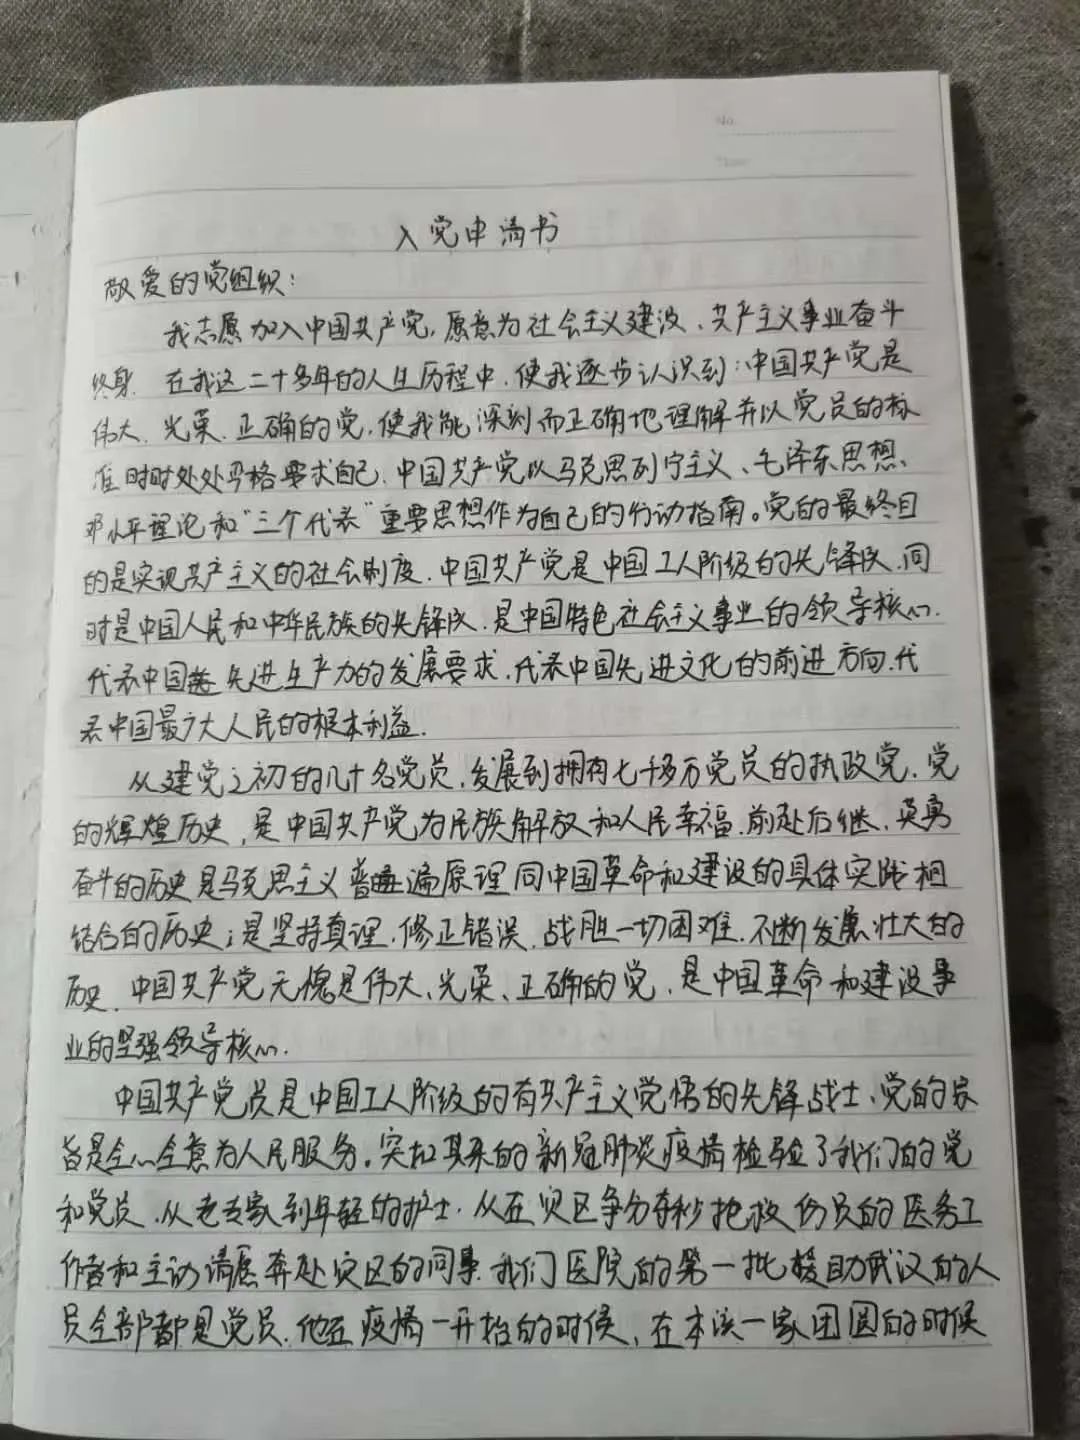 No.
入党申请书
敬爱的党组织：
我志愿加入中国共产党，愿意为社会主义建设、共产主义事业奋斗
终身．在我这二十多年的人生历程中，使我逐步认识到：中国共产党是
伟大、光荣、正确的党，使我能深刻而正确地理解并以党员的标
准时时处处严格要求自己．中国共产党以马克思列宁主义、毛泽东思想、
邓小平理论和“三个代表”重要思想作为自己的行动指南。党的最终目
的是实现共产主义的社会制度．中国共产党是中国工人阶级的先锋队，同
时是中国人民和中华民族的先锋队，是中国特色社会主义事业的领导核心．
代表中国先进生产力的发展要求，代表中国先进文化的前进方向，代
表中国最广大人民的根本利益．
从建党之初的几十名党员，发展到拥有七千多万党员的执政党．党
的辉煌历史，是中国共产党为民族解放和人民幸福，前赴后继，英勇
奋斗的历史是马克思主义普遍原理同中国革命和建设的具体实践相
结合的历史；是坚持真理，修正错误，战胜一切困难，不断发展壮大的
历史．中国共产党无愧是伟大、光荣、正确的党，是中国革命和建设事
业的坚强领导核心．
中国共产党员是中国工人阶级的有共产主义党悟的先锋战士、党的宗
旨是全心全意为人民服务。突如其来的新冠肺炎疫情检验了我们的党
和党员，从老专家到年轻的护士，从在灾区争分夺秒抢救伤员的医务工
作者和主动请愿奔赴灾区的同事．我们医院的第一批援助武汉的人
员全部都是党员．他在疫情一开始的时候，在本该一家团圆的时候